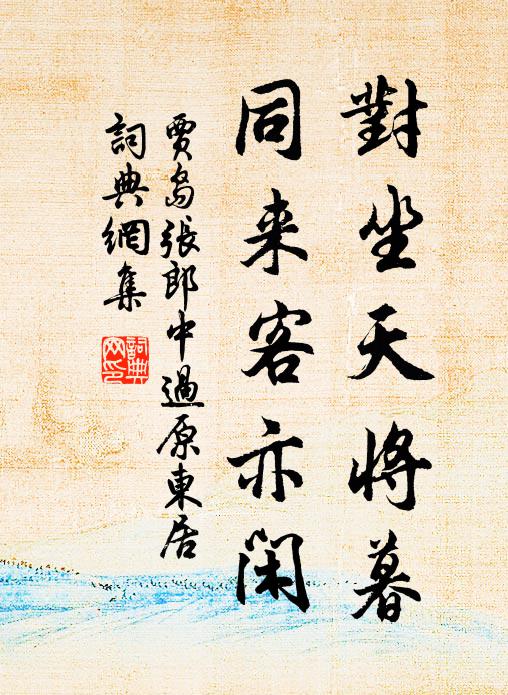 對坐天將暮
同来客亦閑
賈島張郎中過原東居
詞典網集
詞典
网印